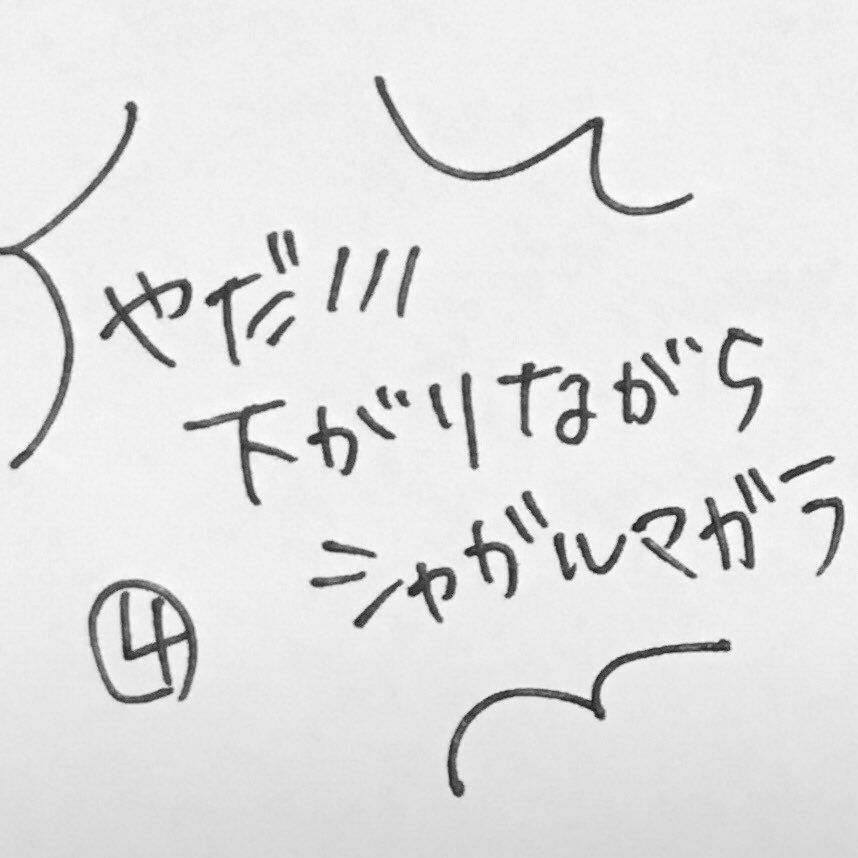 やだ///
下がりながら
シャガルマガラ
④